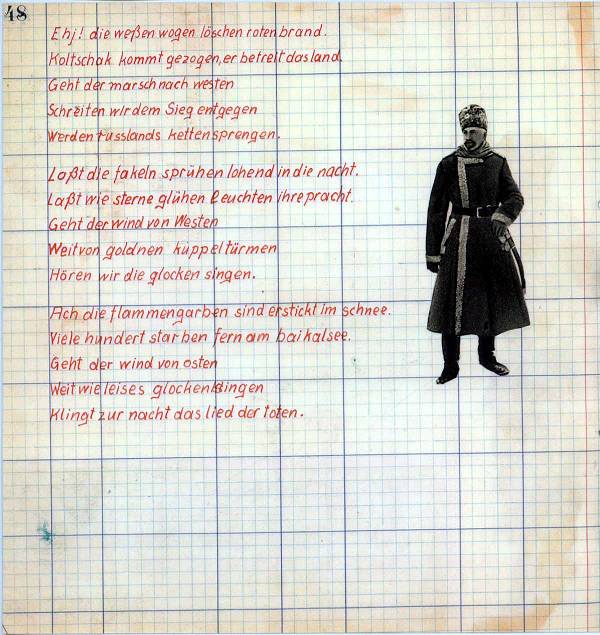 48
Ehj! die weßen wogen löschen roten brand.
Koltschak kommt gezogen, er betreit das land.
Geht der marsch nach westen
Schreiten wir dem Sieg entgegen
Werden russlands ketten sprengen.
Loßt die fakeln sprühen lohend in die nacht.
Laßt wie sterne glühen leuchten ihre pracht.
Geht der wind von Westen
Weit von goldnen kuppeltürmen
Hören wir die glocken singen.
Ach die flammengarben sind erstickt im schnee.
Viele hundert starben fern am baikalsee.
Geht der wind von osten
Weit wie leises glockenklingen
Klingt zur nacht das lied der toten.